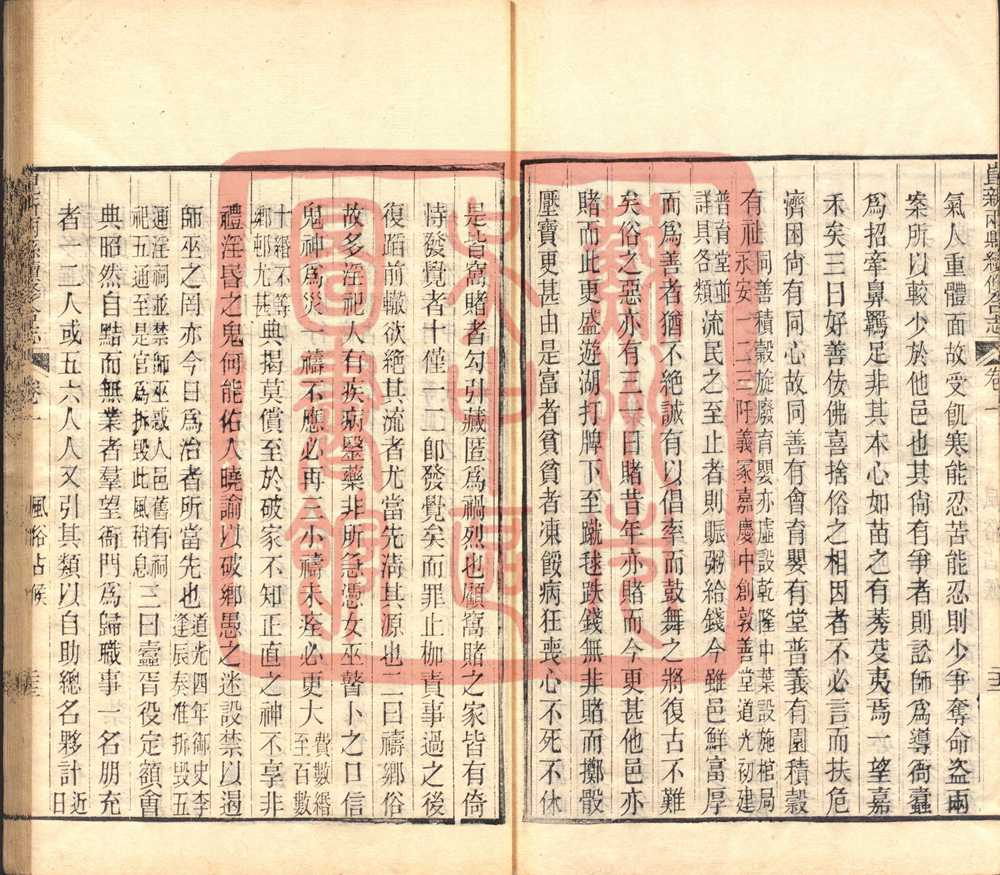 崑新兩縣續修合志 卷一
氣人重體面故受飢寒能忍苦能忍則少爭奪命盜兩
案所以較少於他邑也其尙有爭者則訟師爲導衙蠹
爲招牽鼻羈足非其本心如苗之有莠芟夷焉一望嘉
禾矣三曰好善佞佛喜捨俗之相因者不必言而扶危
濟困尙有同心故同善有會育嬰有堂普義有園積穀
有社同善積穀旋廢育嬰亦虛設乾隆中葉設施棺局
永安一二三阡義冢嘉慶中創敦善堂道光初建
普育堂並
詳具各類流民之至止者則賑粥給錢今雖邑鮮富厚
而爲善者猶不絶誠有以倡率而鼓舞之將復古不難
矣俗之惡亦有三一曰賭昔年亦賭而今更甚他邑亦
賭而此更盛遊湖打牌下至蹴毬跌錢無非賭而擲骰
壓寶更甚由是富者貧貧者凍餒病狂喪心不死不休
是皆窩賭者勾引藏匿爲禍烈也顧窩賭之家皆有倚
恃發覺者十僅一二卽發覺矣而罪止枷責事過之後
復蹈前轍欲絶其流者尤當先淸其源也二曰禱鄕俗
故多淫祀人有疾病醫藥非所急憑女巫瞽卜之口信
鬼神爲災一禱不應必再三小禱未痊必更大費數緡
至百數
十緡不等
鄕邨尤甚典揭莫償至於破家不知正直之神不享非
禮淫昏之鬼何能佑人曉諭以破鄕愚之迷設禁以遏
師巫之罔亦今日爲治者所當先也道光四年御史李
逢辰奏准拆毁五
通淫祠並禁師巫或人邑舊有祠
祀五通至是官爲拆毁此風稍息三曰蠹胥役定額會
典昭然自點而無業者羣望衙門爲歸職事一名朋充
者一二人或五六人人又引其類以自助總名夥計近
日
卷一 風俗占候